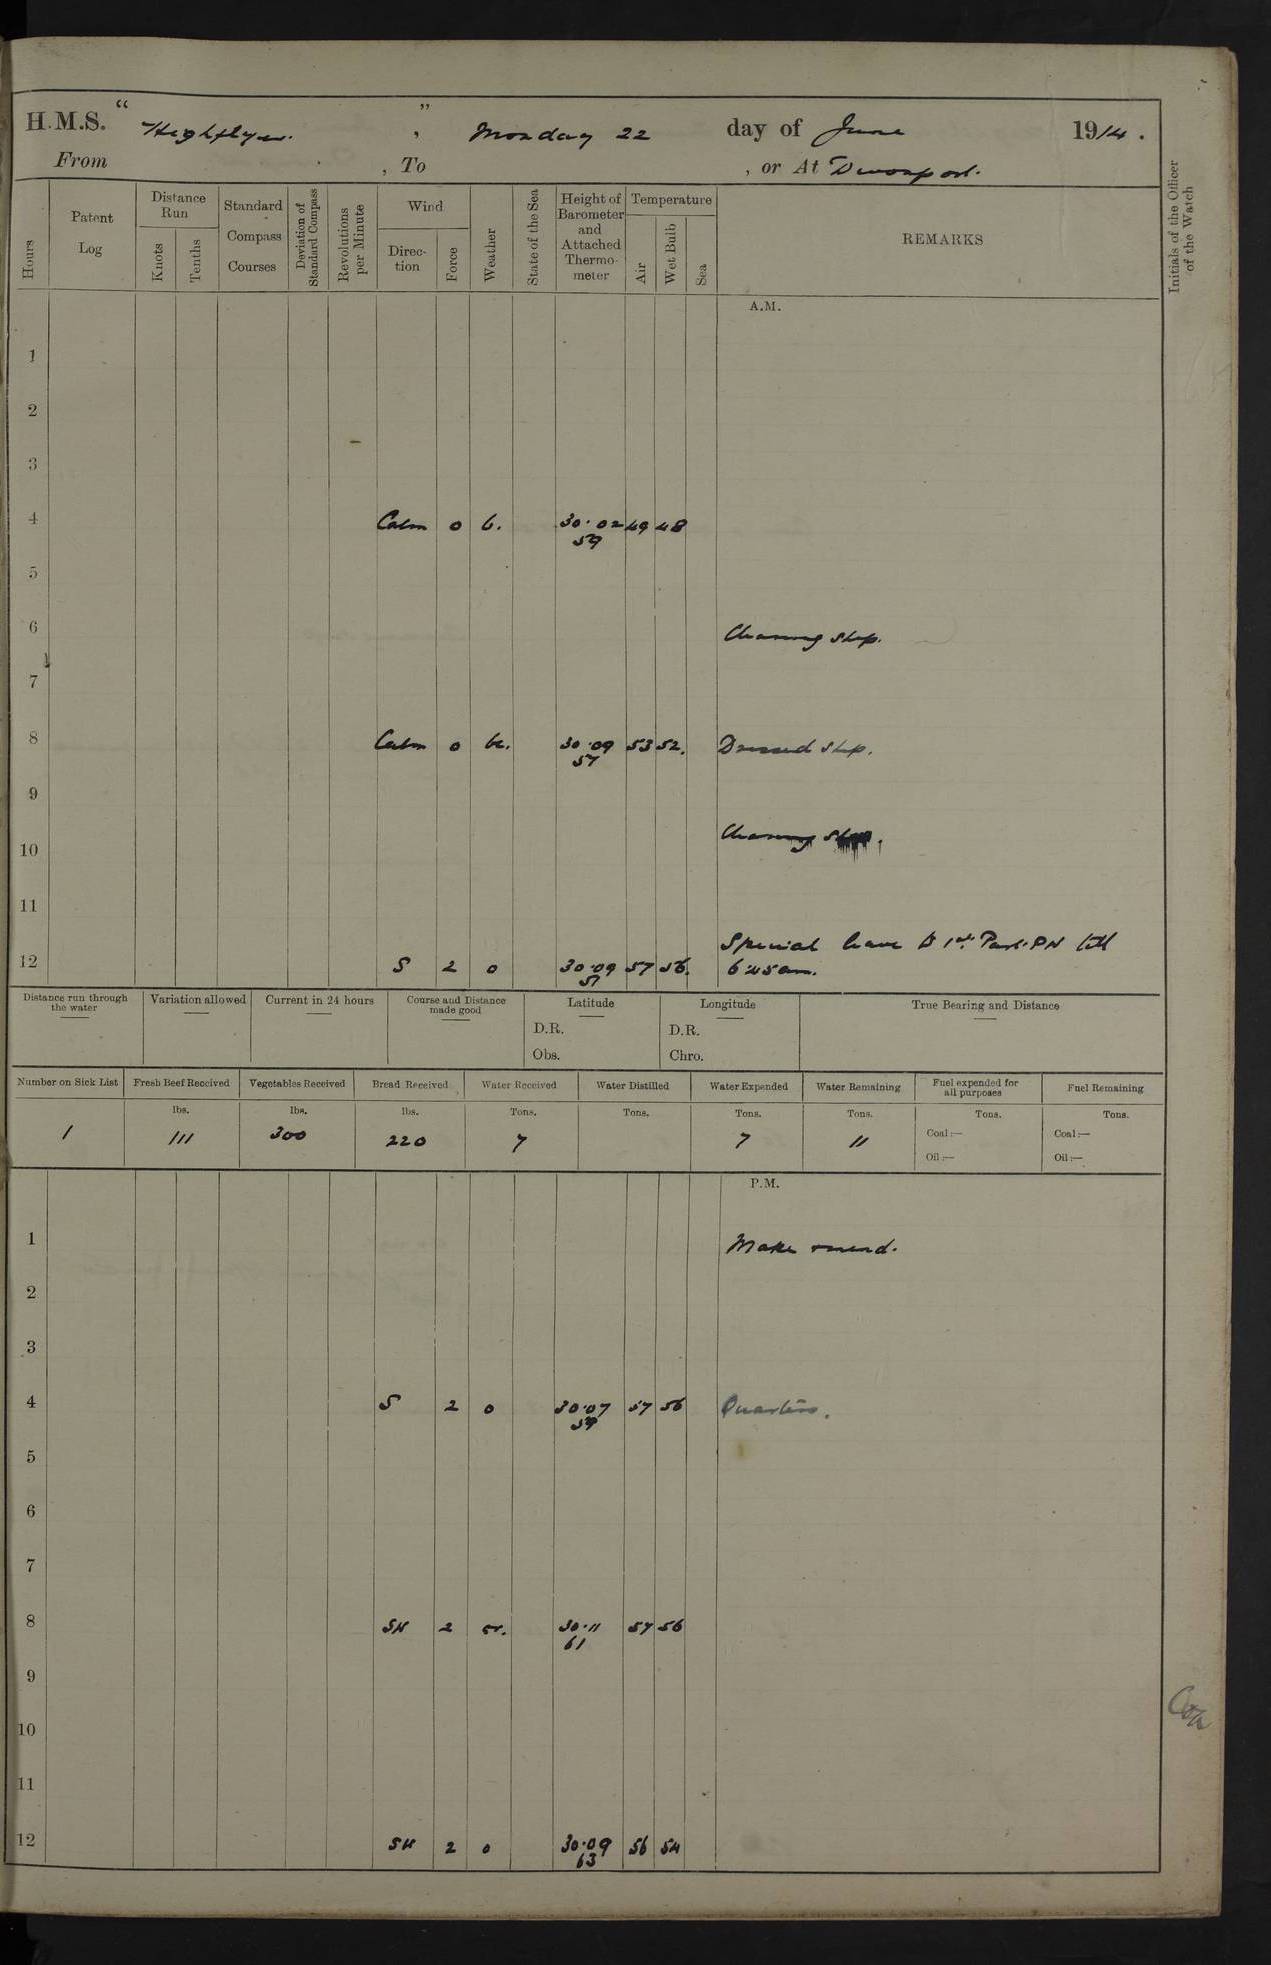 H.M.S. “ Highflyer. ” , Monday 22 day of June 1914 .
From , To , or At Devonport.
Hours
Patent Log
Distance Run
Knots
Tenths
Standard Compass Courses
Deviation of Standard Compass
Revolutions per Minute
Wind
Direc-tion
Force
Weather
State of the Sea
Height of Barometer and Attached Thermo-meter
Temperature
Air
Wet Bulb
Sea
REMARKS
Initials of the Officer of the Watch
A.M.
1
2
3
4 Calm 0 b. 30.02 49 48
59
5
6 Cleaning ship.
7
8 Calm 0 bc. 30.09 53 52. Dressed ship.
57
9
Cleaning ship.
10
11
Special leave to 1st Part P.W till
12 S 2 o 30.09 57 56. 6.45am.
57
Distance run through the water
Variation allowed
Current in 24 hours
Course and Distance made good
Latitude
D.R.
Obs.
Longitude
D.R.
Chro.
True Bearing and Distance
Number on Sick List Fresh Beef Received Vegetables Received Bread Received Water Received Water Distilled Water Expended Water Remaining Fuel expended for all purposes Fuel Remaining
lbs. lbs. lbs. Tons. Tons. Tons. Tons. Tons. Tons.
1 111 300 220 7 7 11 Coal :— Coal :—
Oil :— Oil :—
P.M.
1 Make & mend.
2
3
4 S 2 o 30.07 57 56 Quarters.
59
5
6
7
8 SW 2 or. 30.11 57 56
61
9
10
11
12 SW 2 o 30.09 56 54
63